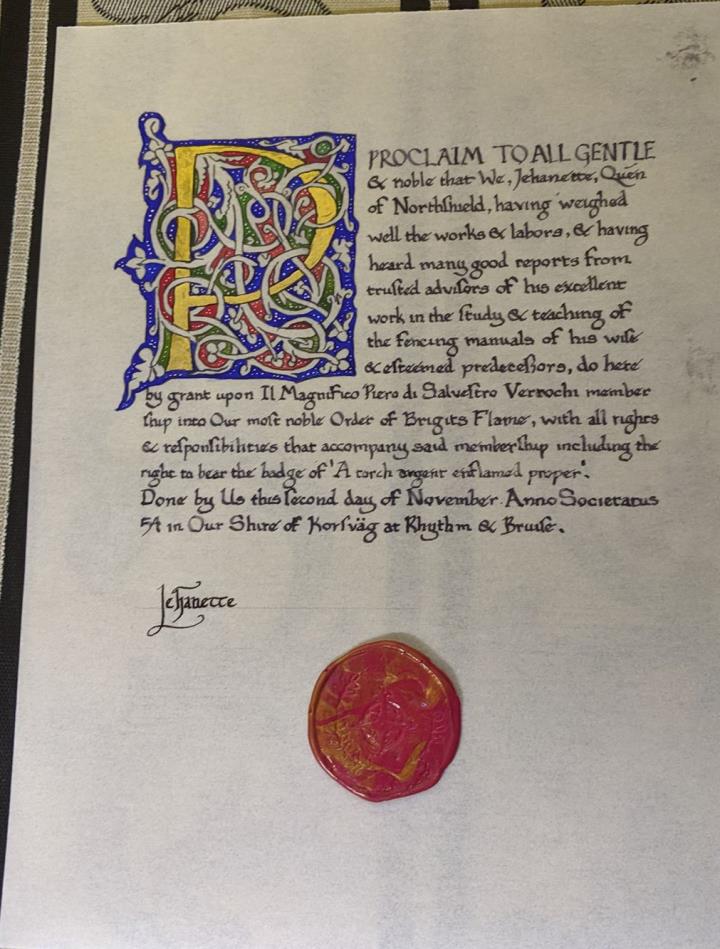 PROCLAIM TO ALL GENTLE
& noble that We, Jehanette, Quen
of Northſhield, having weighed
well the works & labors, & having
heard many good reports from
truſted adviſors of his excellent
work in the ſtudy & teaching of
the fencing manuals of his wiſe
& eſteemed predeceßors, do here
by grant upon Il Magnifico Piero di Salveſtro Verrochi member
ſhip into Our moſt noble Order of Brigits Flame, with all rights
& reſponſibilities that accompany said memberſhip including the
right to bear the badge of 'A torch argent enflamed proper'.
Done by Us this ſecond day of November Anno Societatus
54 in Our Shire of Korſväg at Rhythm & Bruiſe.
Jehanette